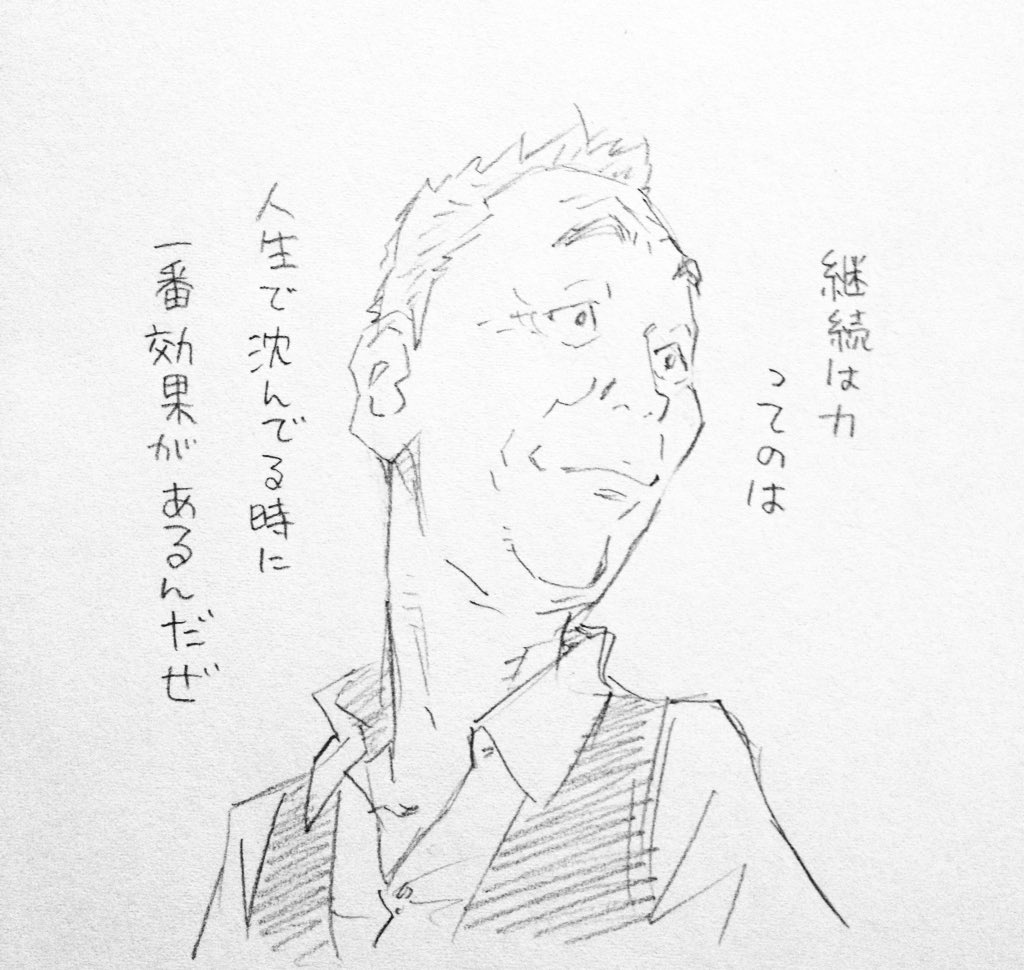 継続は力
ってのは
人生で沈んでる時に
一番効果があるんだぜ